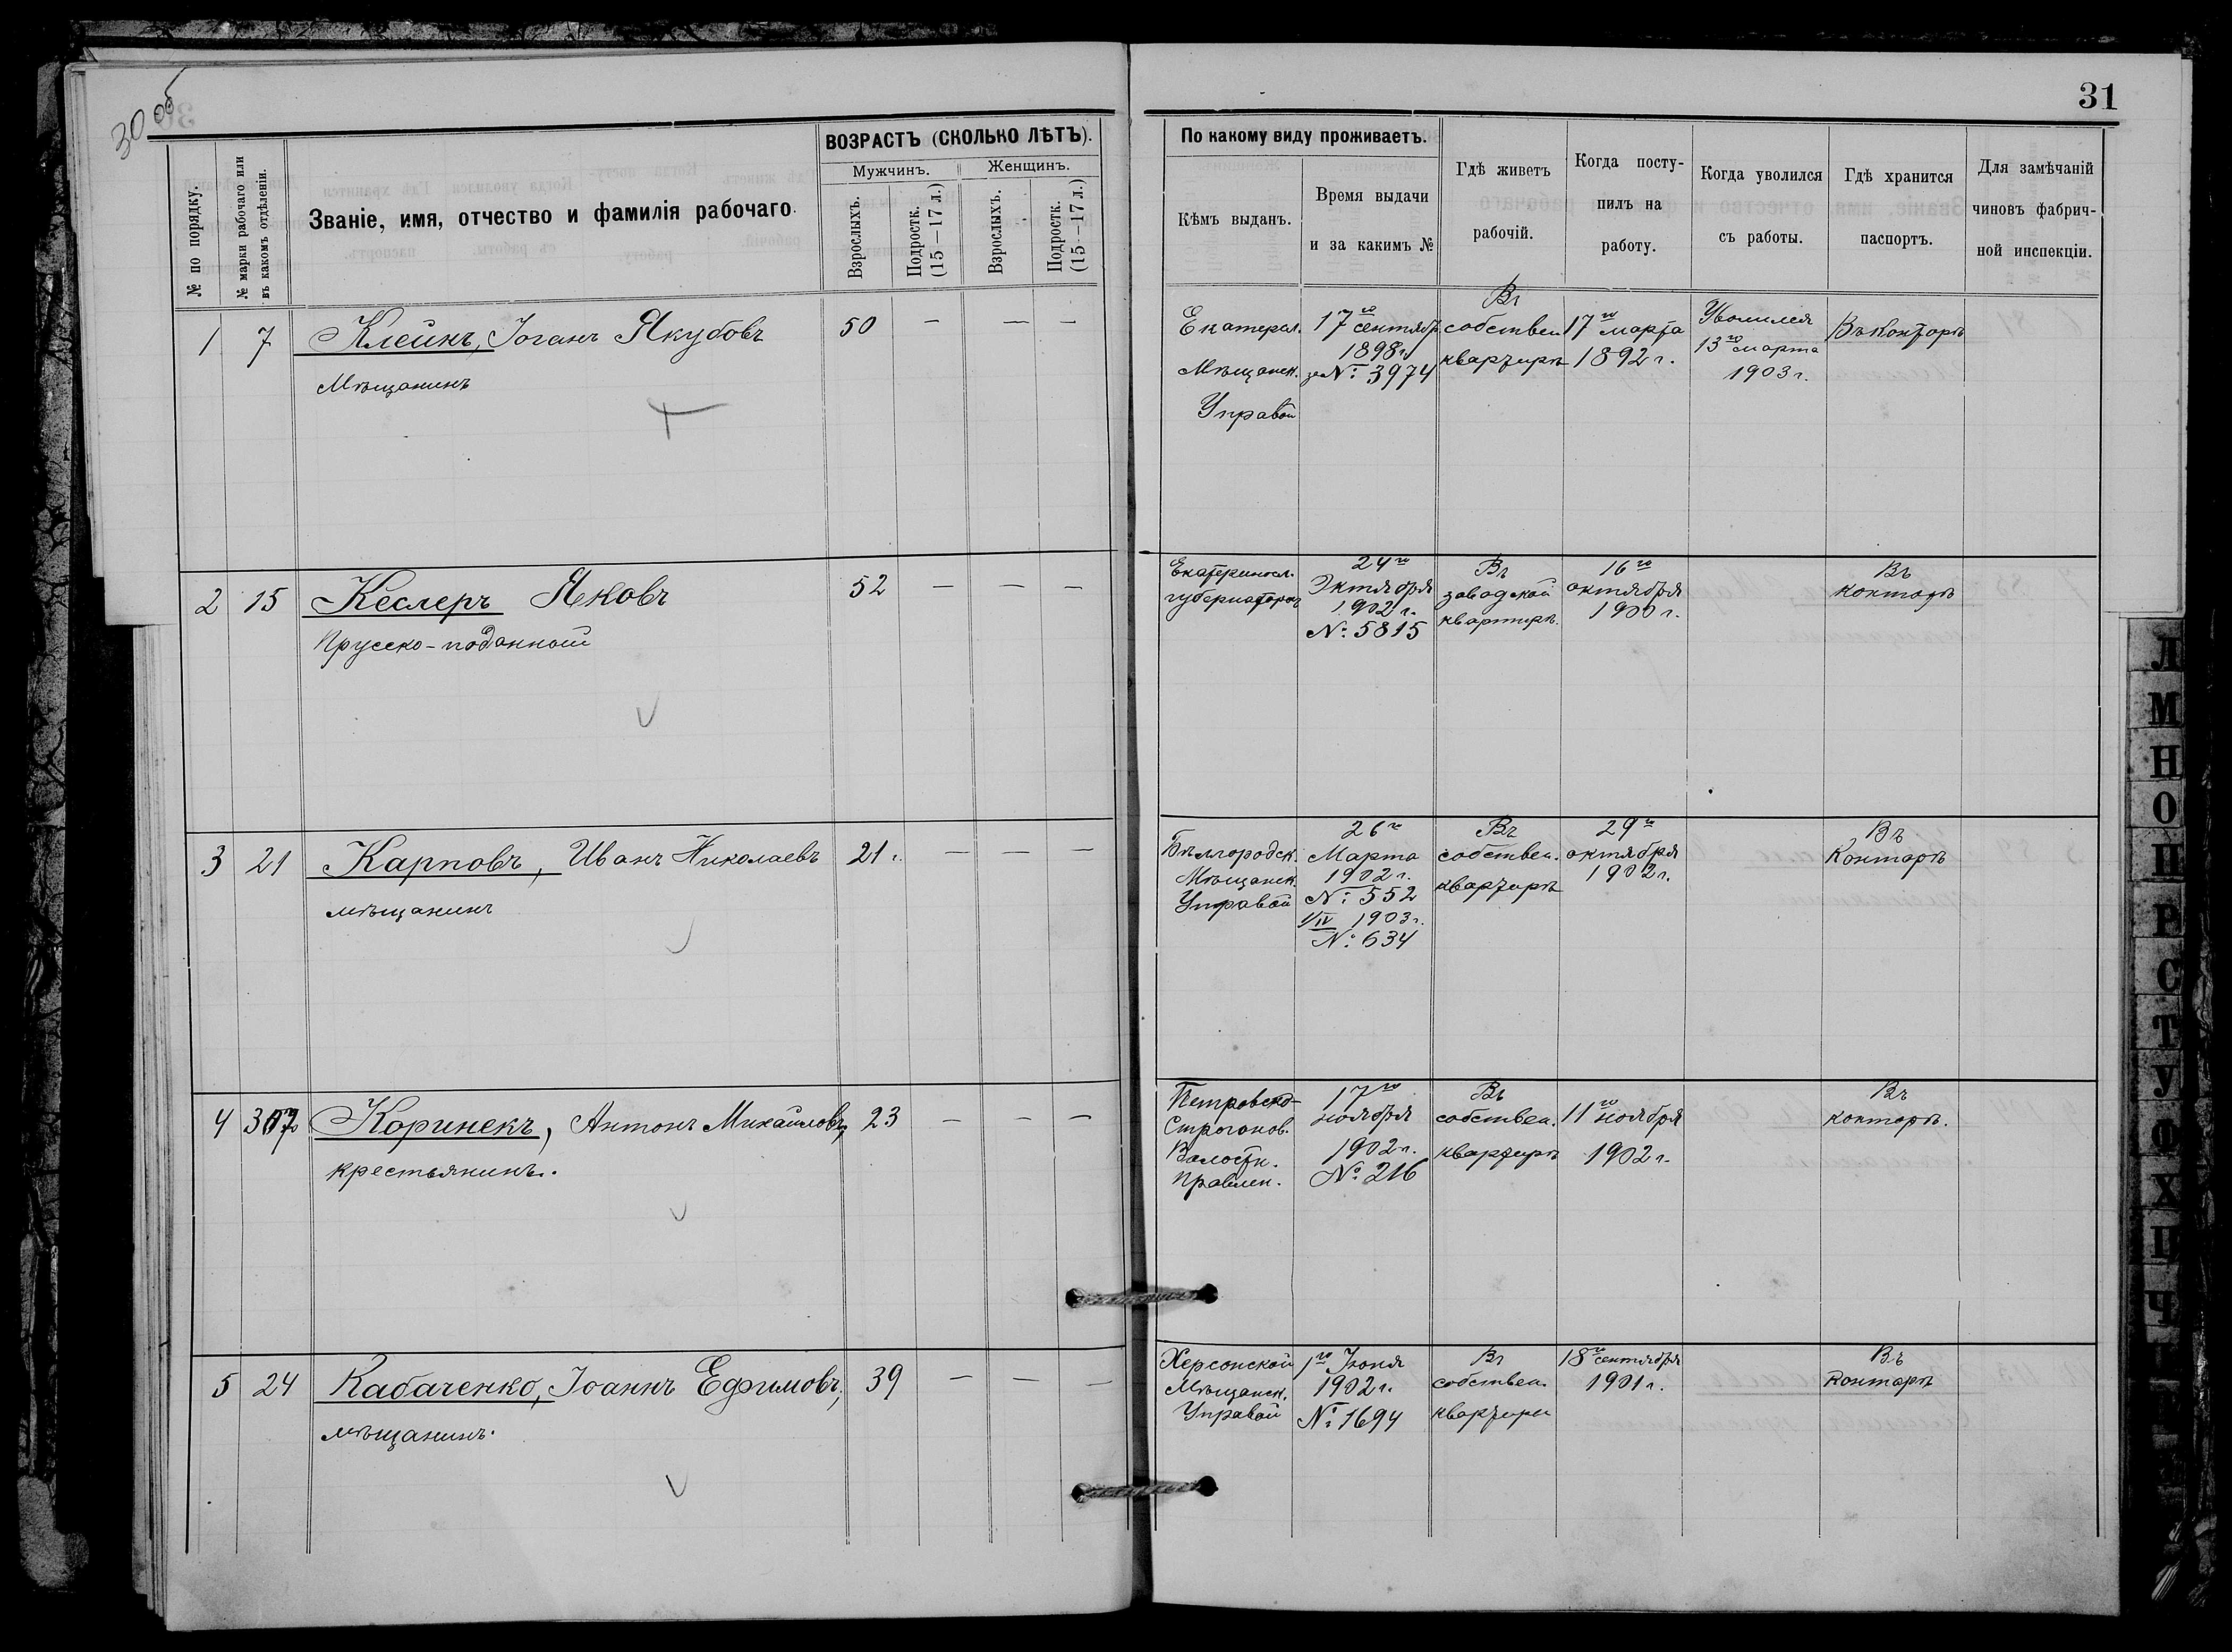 30 об
31
ВОЗРАСТЪ (СКОЛЬКО ЛѢТЪ).
Мужчинъ.
Женщинъ.
№ по порядку.
№ марки рабочаго или
въ какомъ отдѣленіи.
Званіе, имя, отчество и фамилія рабочаго.
Взрослыхъ.
Подростк.
(15—17 л.)
Взрослыхъ.
Подростк.
(15—17 л.)
По какому виду проживаетъ.
Кѣмъ выданъ.
Время выдачи
и за какимъ №
Гдѣ живетъ
рабочій.
Когда посту-
пилъ на
работу.
Когда уволился
съ работы.
Гдѣ хранится
паспортъ.
Для замѣчаній
чиновъ фабрич-
ной инспекціи.
1
7
Клейнъ, Іоганъ Якубовъ
мѣщанинъ
50
—
—
—
Екатерил.
Мѣщанск.
Управой
17го сентября
1898г.
за № 3974
Въ
собствен.
квартирѣ
17го марта
1892 г.
Уволился
13го марта
1903 г.
Въ конторѣ
2
15
Кеслеръ Яковъ
Прусско-поданной
52
—
—
—
Екатеринос.
губернаторомъ
24го
Октября
1902 г.
№ 5815
Въ
заводской
квартирѣ.
16го
октября
1900 г.
Въ
конторѣ
3
21
Карповъ, Иванъ Николаевъ
мѣщанинъ
21 г.
—
—
—
Бѣлгородск.
Мѣщанск.
Управой
26го
Марта
1902 г.
№ 552
1/IV 1903 г.
№ 634
Въ
собствен.
квартирѣ
29го
октября
1902 г.
Въ
Конторѣ
4
Коринекъ, Антонъ Михайловъ,
крестьянинъ.
23
—
—
—
Петровско-
Строганов.
Волостн.
Правлен.
17го
ноября
1902 г.
№ 216
Въ
собствен.
квартирѣ
11го ноября
1902 г.
Въ
конторѣ.
5
24
Кабаченко, Іоаннъ Ефимовъ,
мѣщанинъ.
39
—
—
—
Херсонской
Мѣщанск.
Управой
1го Іюня
1902 г.
№ 1694
Въ
собствен.
квартиры
18го сентября
1901 г.
Въ
Конторѣ
Л
М
Н
О
П
Р
С
Т
У
Ф
Х
Ц
Ч